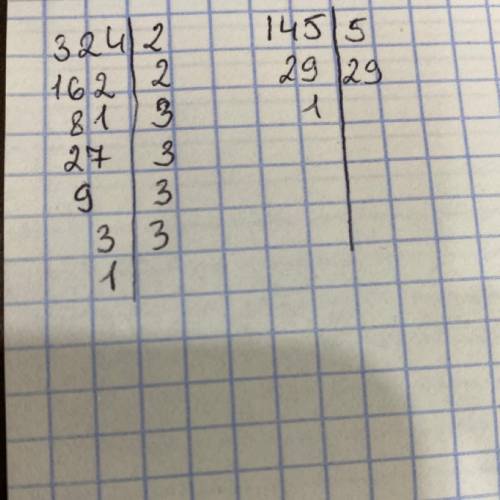 324 | 2
162 | 2
81 | 3
27 | 3
9 | 3
3 | 3
1 |
145 | 5
29 | 29
1 |